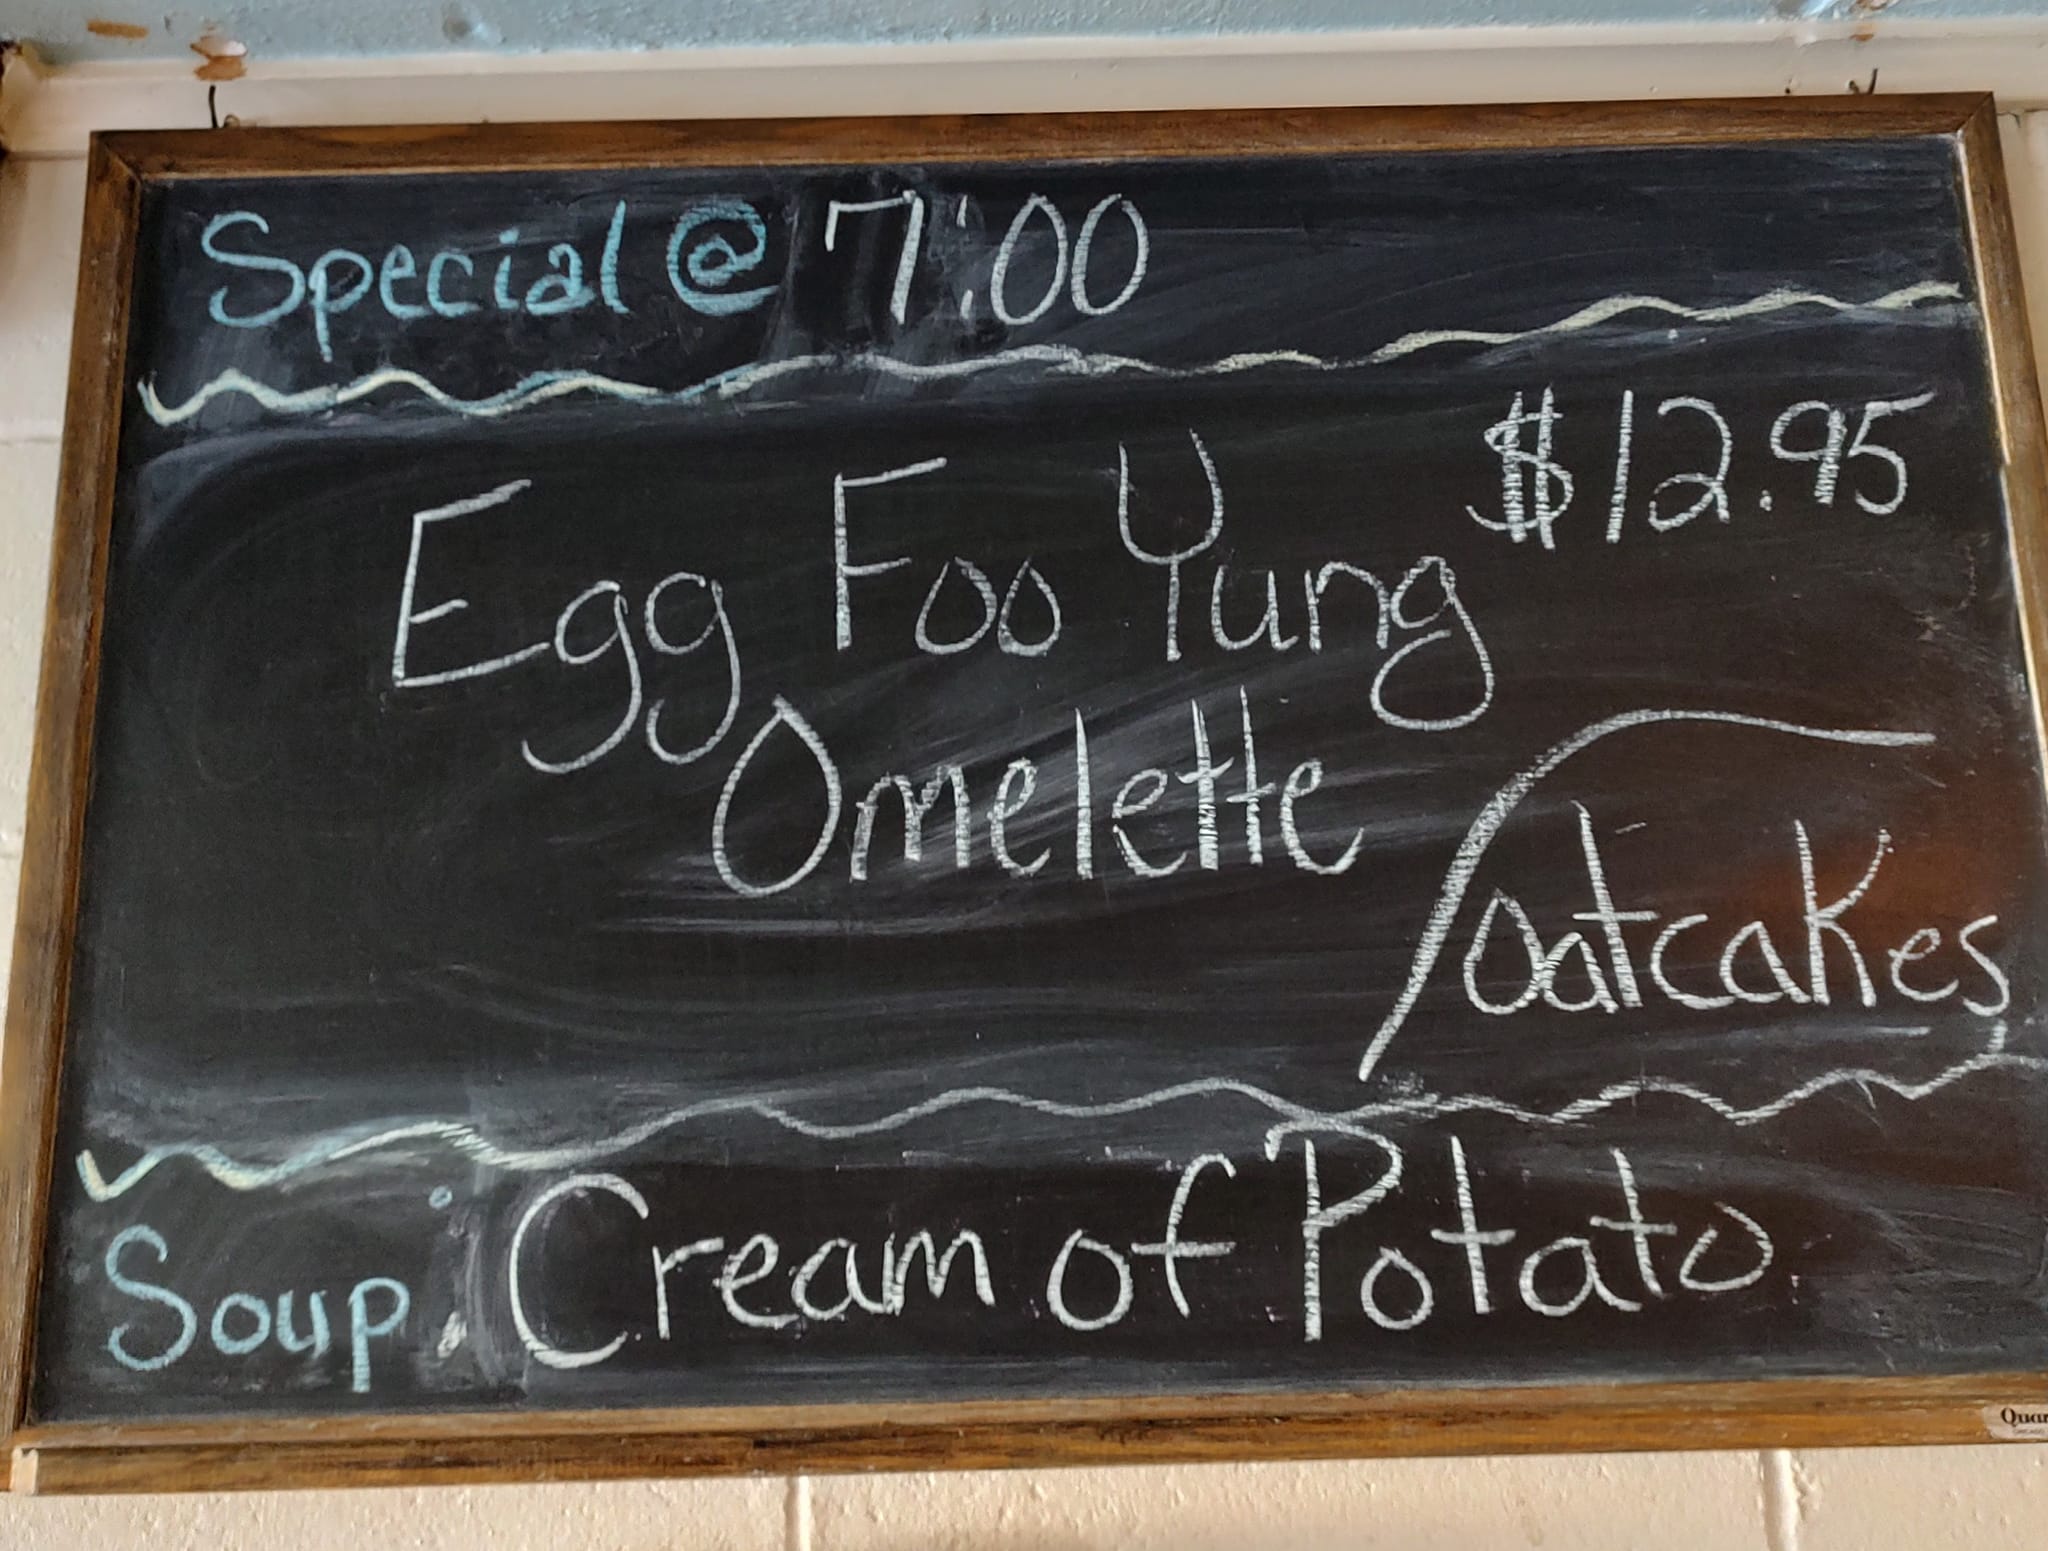 Special @ 7:00
$12.95
Egg Foo Yung
Omelette
oatcakes
Soup: Cream of Potato